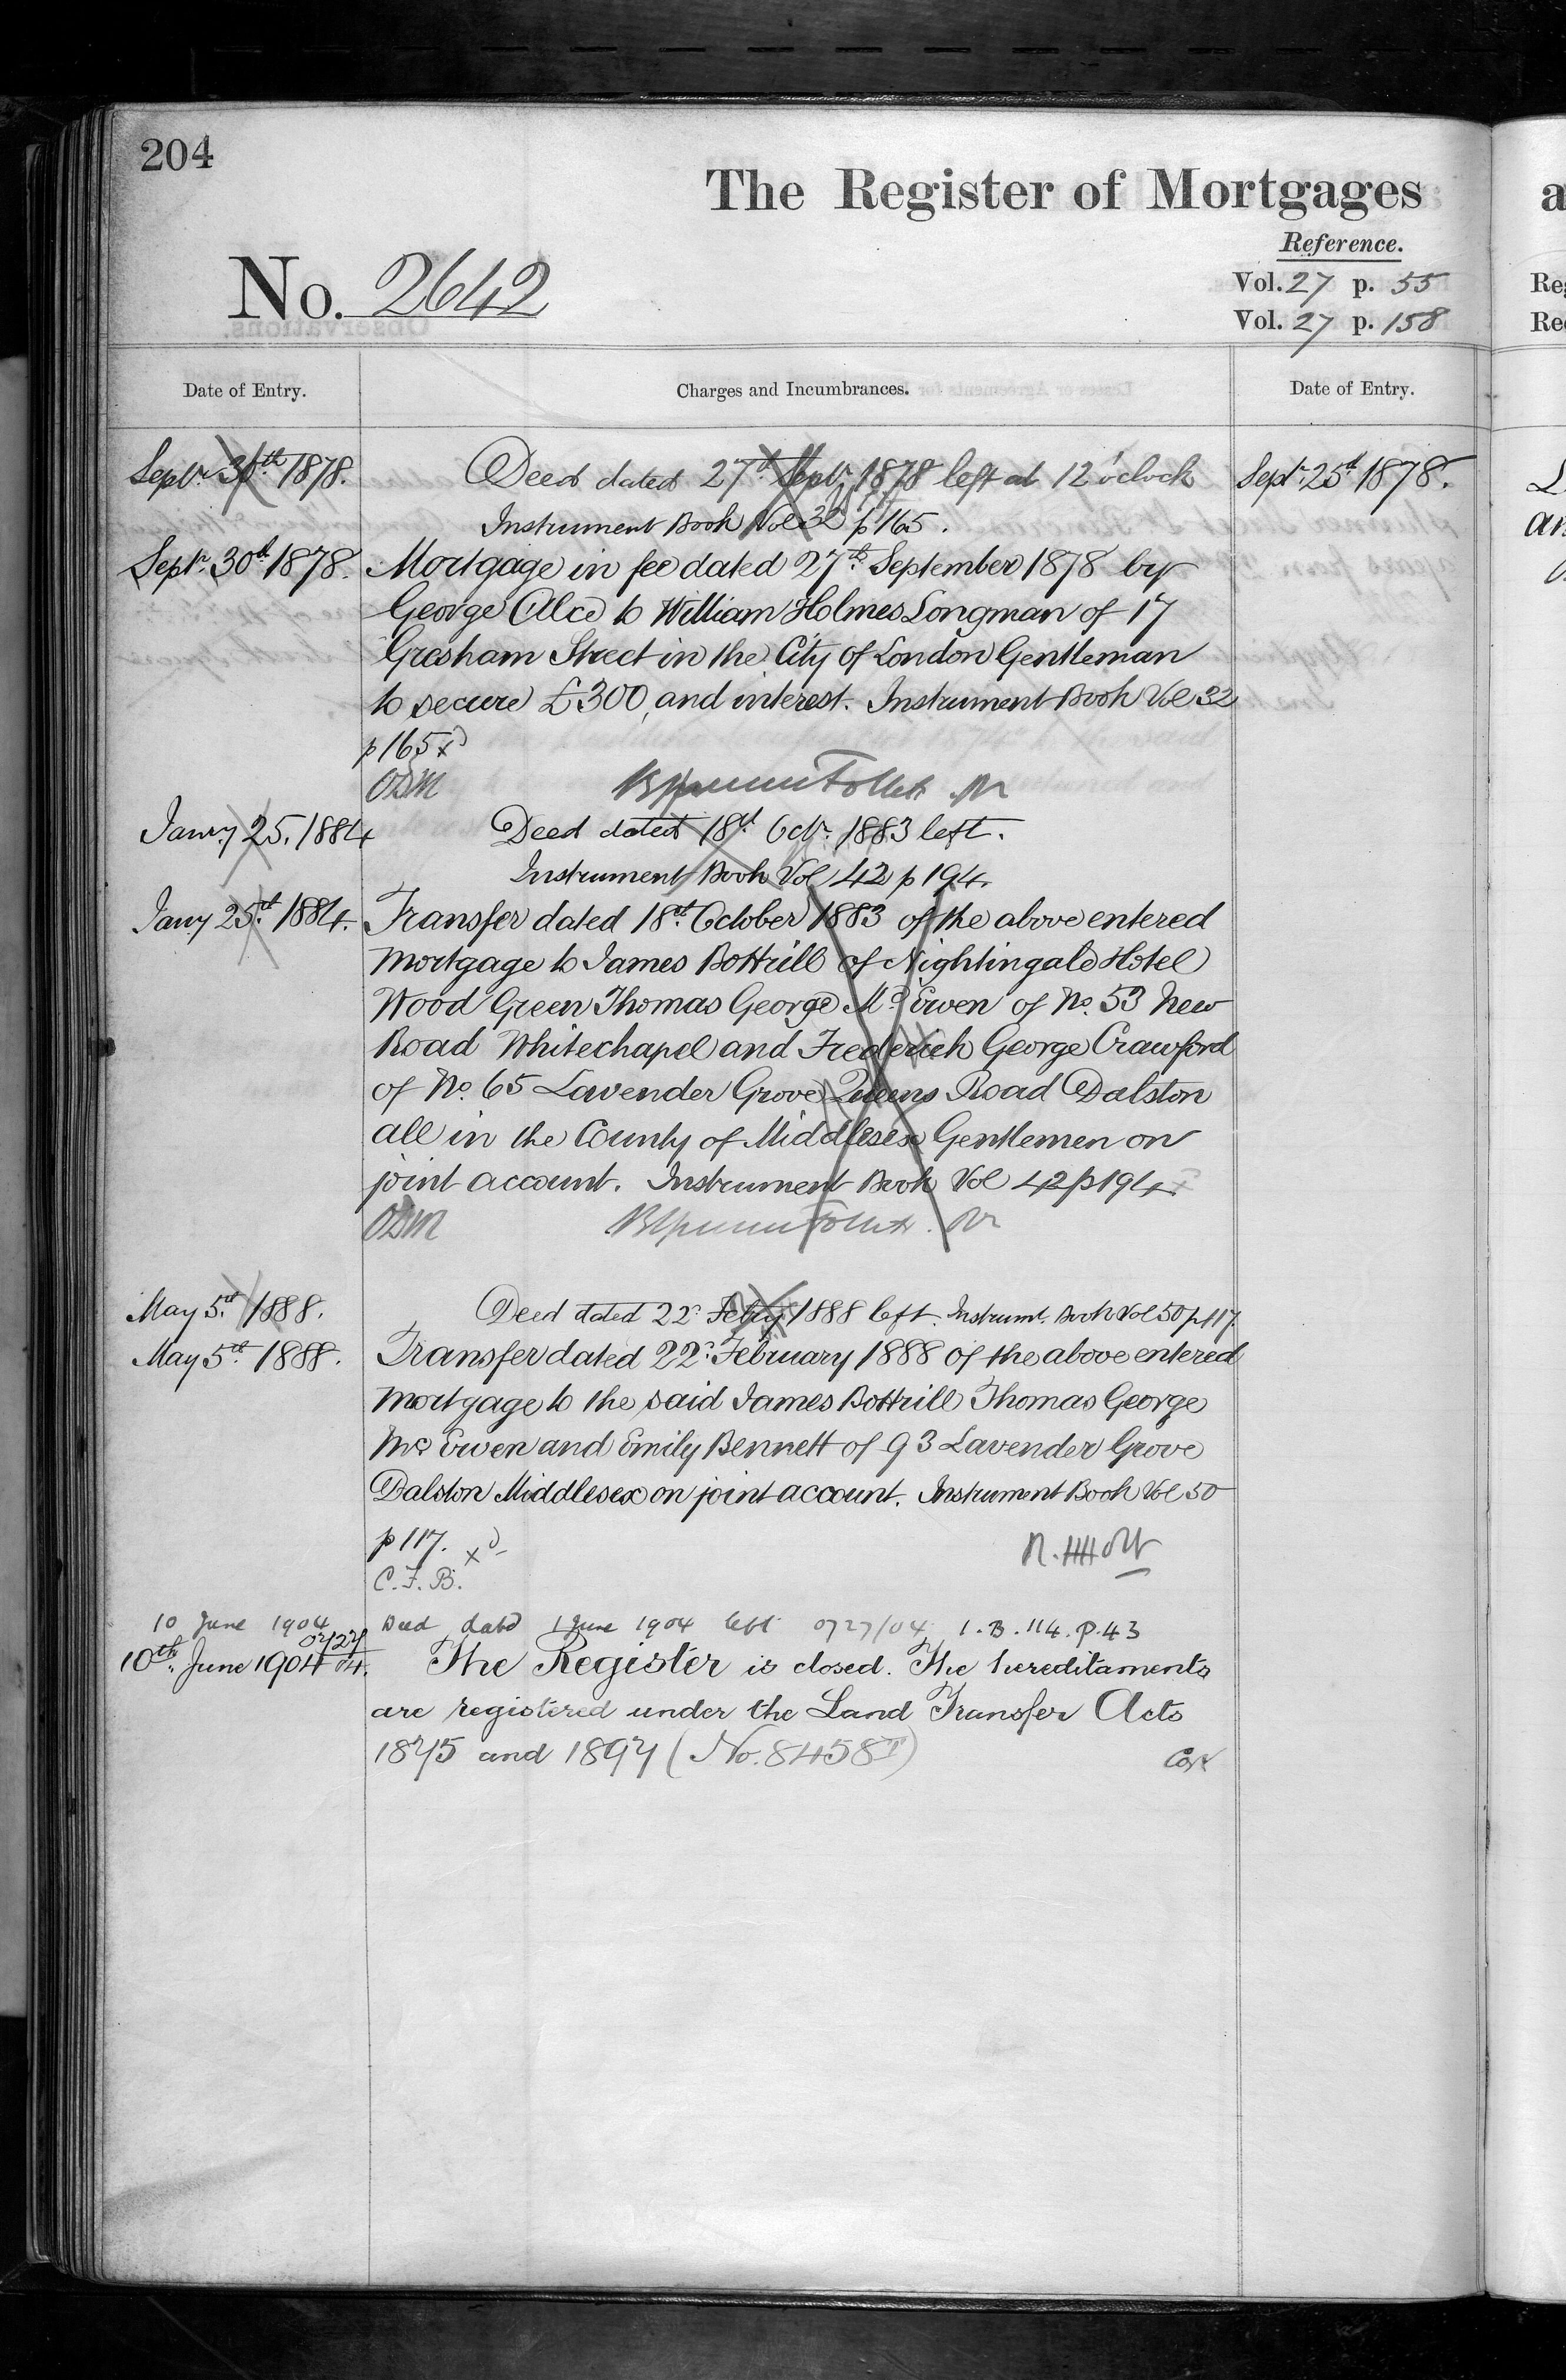 204
The Register of Mortgages
a
Reference.
No. 2642
Vol. 27 p. 55
Vol. 27 p. 158
Date of Entry.
Charges and Incumbrances.
Date of Entry.
Septr. 30th 1878.
Deed dated 27th Septr. 1878 left at 12 o'clock
Septr. 25th 1878.
Instrument Book Vol 32 p 165.
Septr. 30th 1878.
Mortgage in fee dated 27th September 1878 by
George Alce to William Holmes Longman of 17
Gresham Street in the City of London Gentleman
to secure £300 and interest. Instrument Book Vol 32
p 165 xd
ODM
Janry 25. 1884
Deed dated 18th Octr. 1883 left.
Instrument Book Vol 42 p 194.
Jany 25th 1884.
Transfer dated 18th October 1883 of the above entered
Mortgage to James Bottrill of Nightingale Hotel
Wood Green Thomas George McEwen of No. 53 New
Road Whitechapel and Frederich George Crawford
of No. 65 Lavender Grove Queens Road Dalston
all in the County of Middlesex Gentlemen on
joint account. Instrument Book Vol 42 p 194
ODM
May 5th 1888.
Deed dated 22d Febry 1888 left. Instrumt. Book Vol 50 p 117.
May 5th 1888.
Transfer dated 22d February 1888 of the above entered
Mortgage to the said James Bottrill Thomas George
McEwen and Emily Bennett of 93 Lavender Grove
Dalston Middlesex on joint account. Instrument Book Vol 50
p 117. xd
C.F.B.
10 June 1904
Deed dated 1 June 1904 left 0727/04 I.B. 114. P. 43
10th June 1904 0727/04.
The Register is closed. The hereditaments
are registered under the Land Transfer Acts
1875 and 1897 (No. 8458)